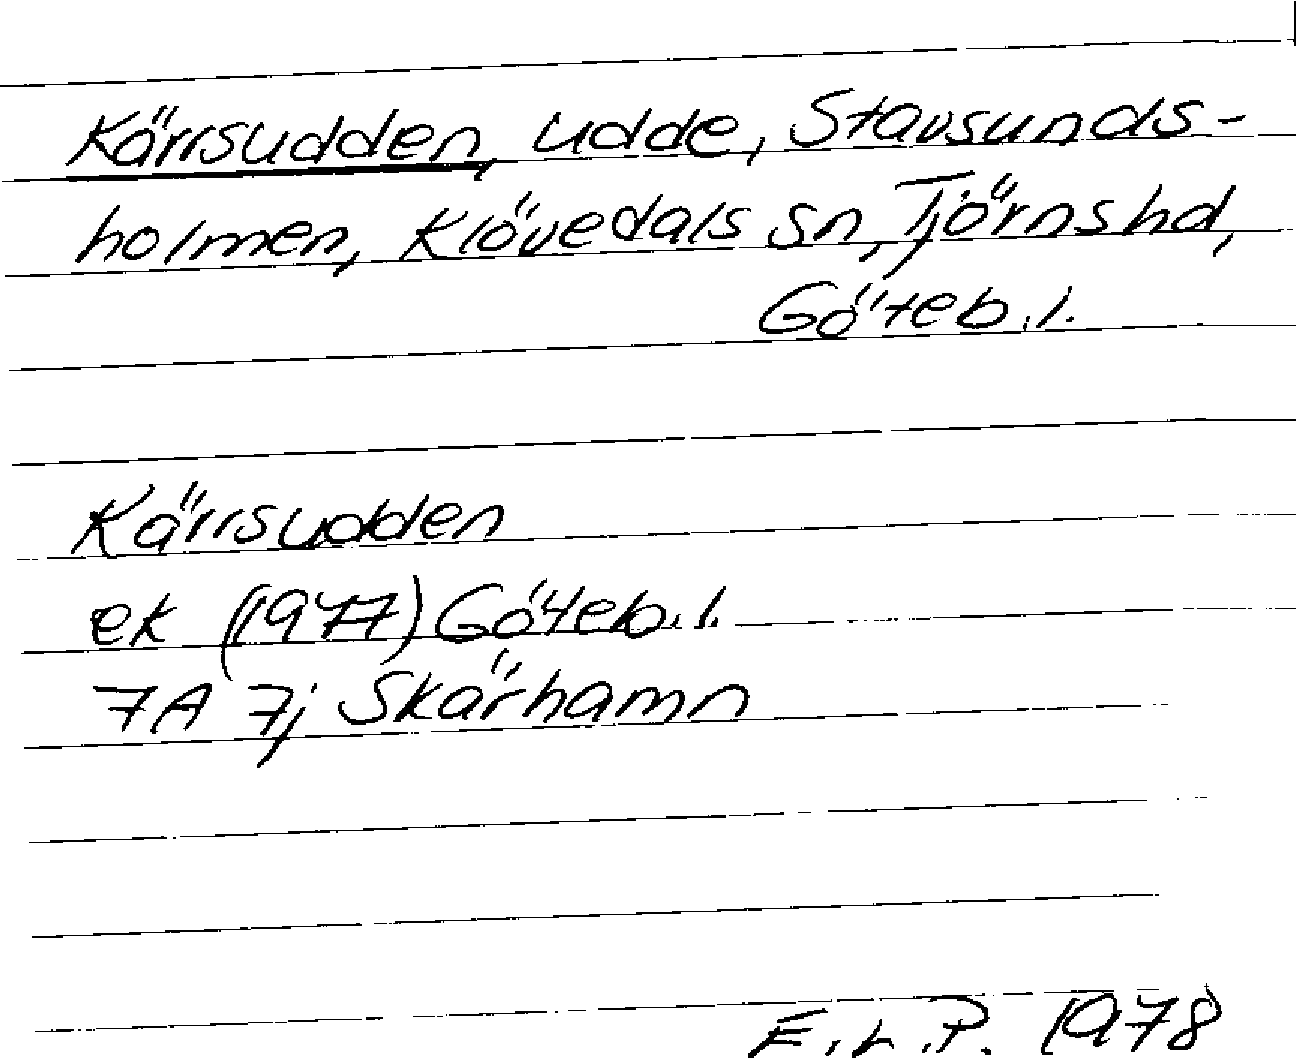 Kärrsudden, udde, Stavsunds-
holmen, Klövedals sn, Tjörns hd,
Göteb. l.
Kärrsudden
ek (1977) Göteb. l.
7A 7j Skärhamn
E.L.P. 1978